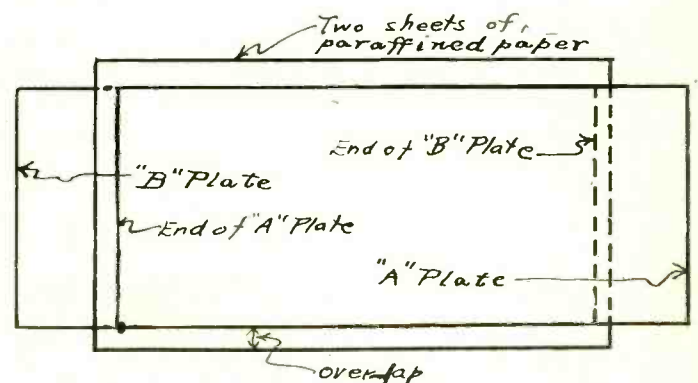 Two sheets of
paraffined paper
End of "B" Plate
"B" Plate
End of "A" Plate
"A" Plate
overlap